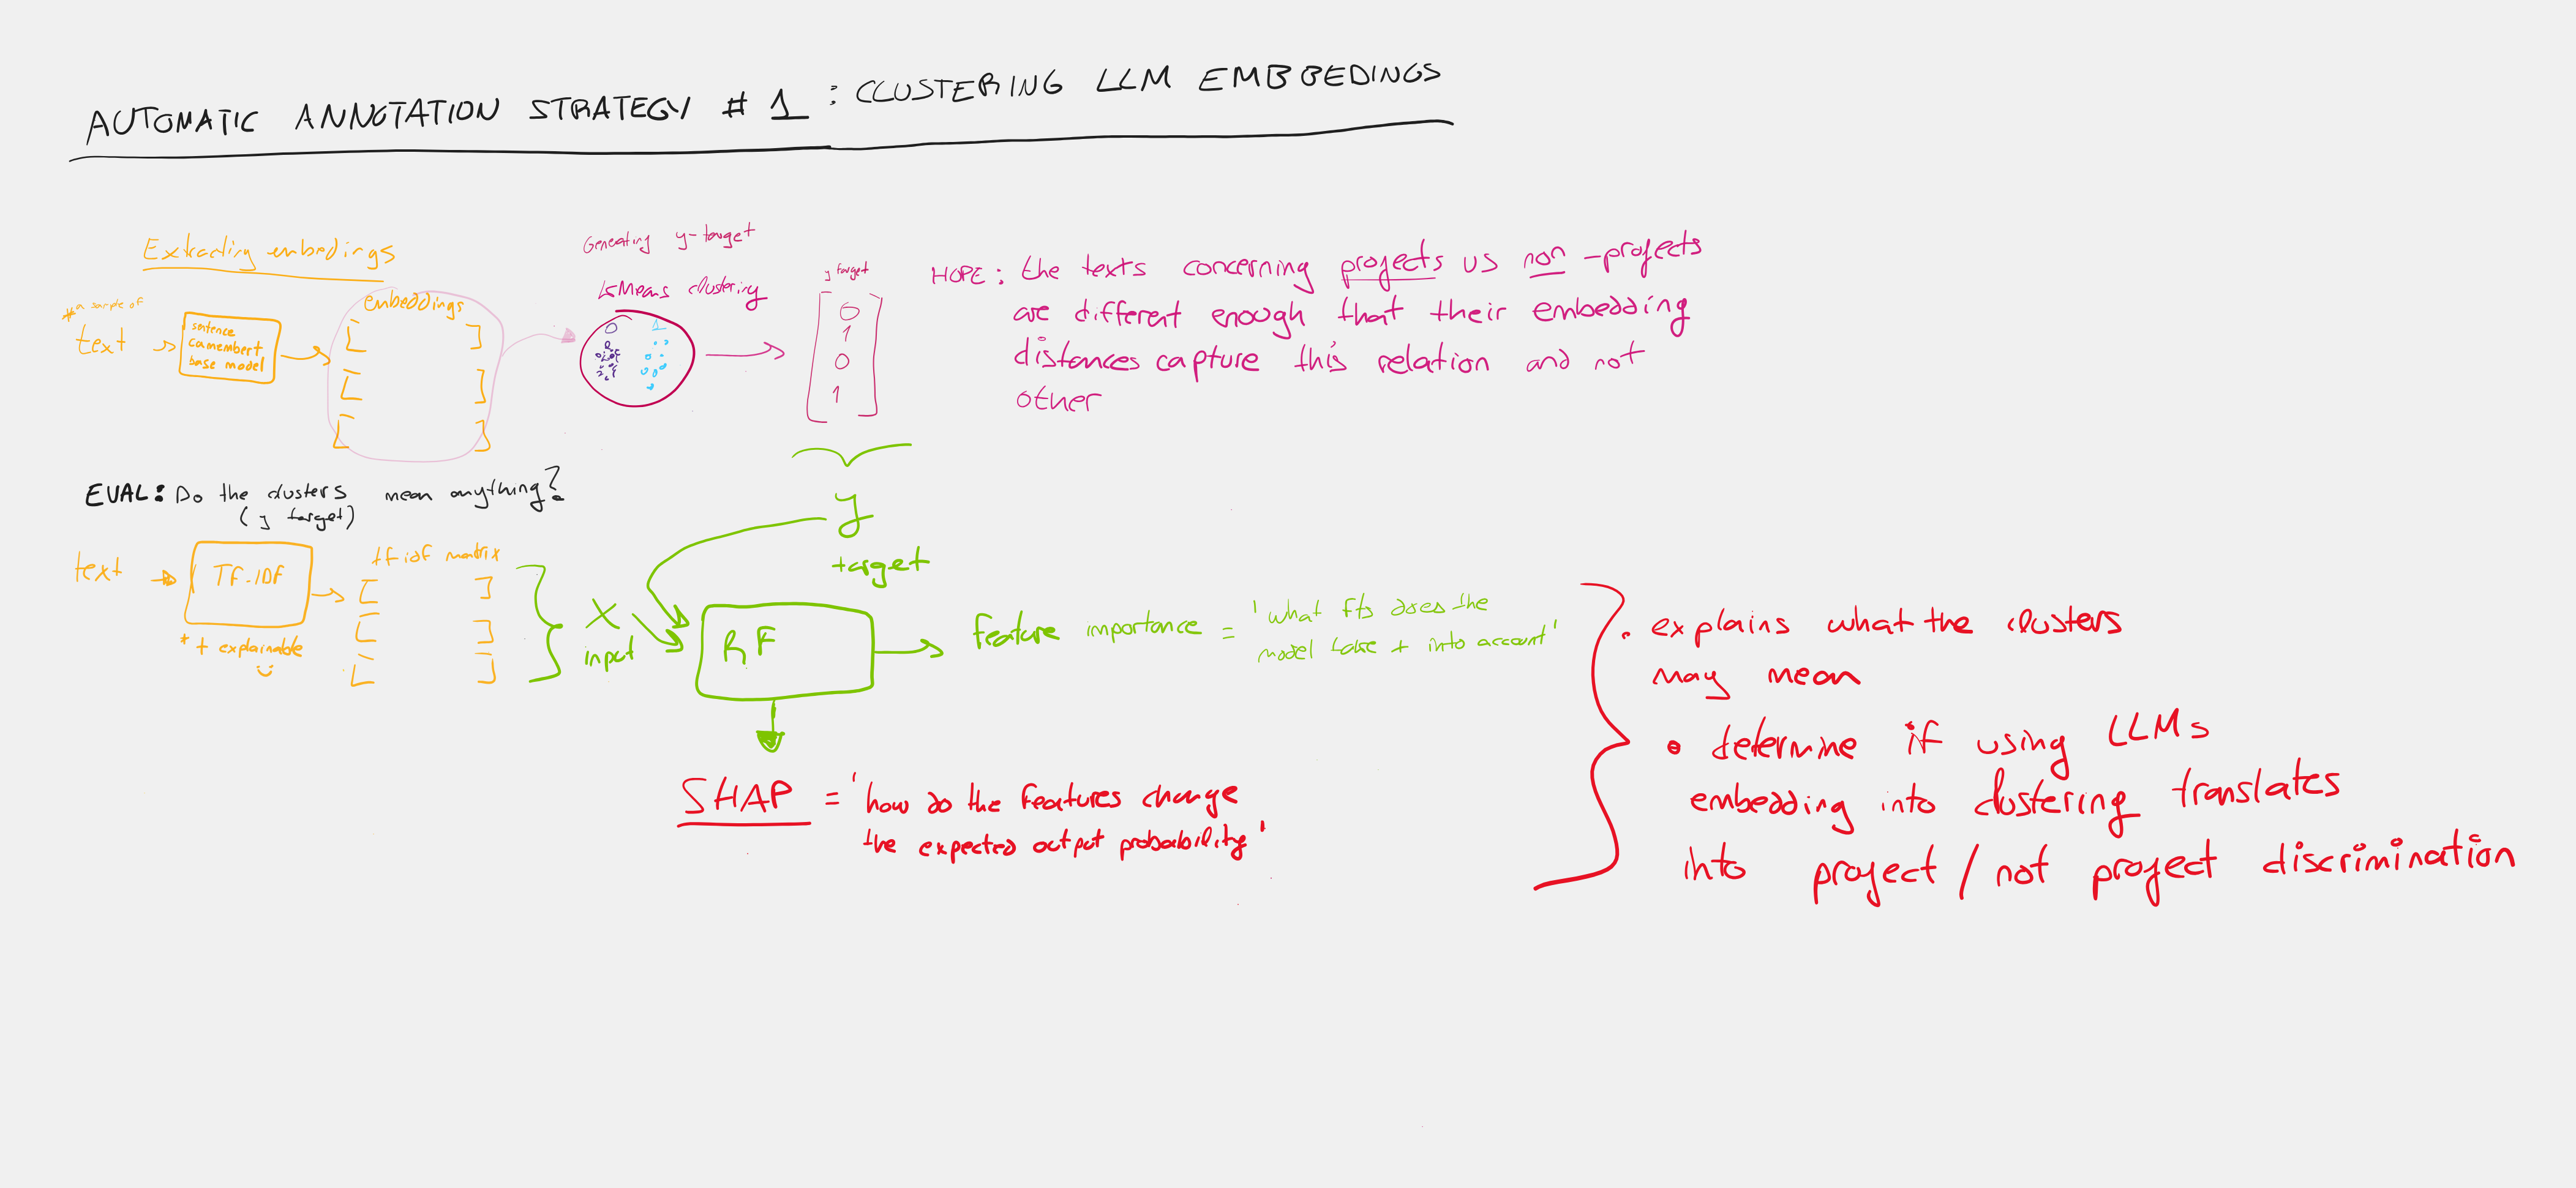 AUTOMATIC ANNOTATION STRATEGY # 1 : CLUSTERING LLM EMBBEDINGS
Extracting embedings
* a sample of
text
sentence
camembert
base model
embeddings
Generating y-target
KMeans clustering
0 1
y target
0
1
0
1
HOPE: the texts concerning projects vs non-projects
are different enough that their embedding
distances capture this relation and not
other
EVAL: Do the clusters mean anything?
(y target)
text
TF-IDF
* + explainable
tf idf matrix
X
input
y
target
RF
feature importance = 'what fts does the
model take + into account'
SHAP = 'how do the features change
the expected output probability'
• explains what the clusters
may mean
• determine if using LLMs
embedding into clustering translates
into project / not project discrimination